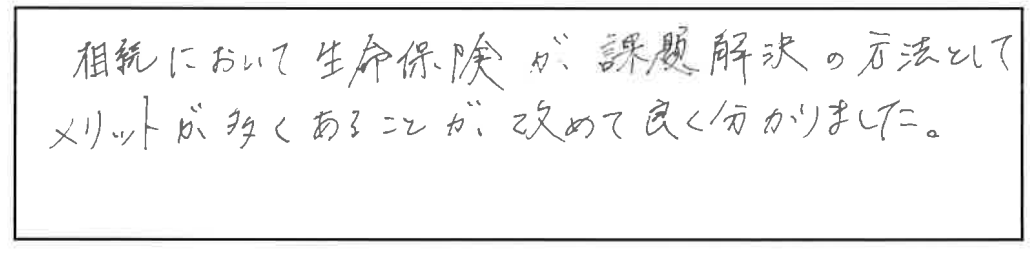 相続において生命保険が、課題解決の方法として
メリットが多くあることが、改めて良く分かりました。